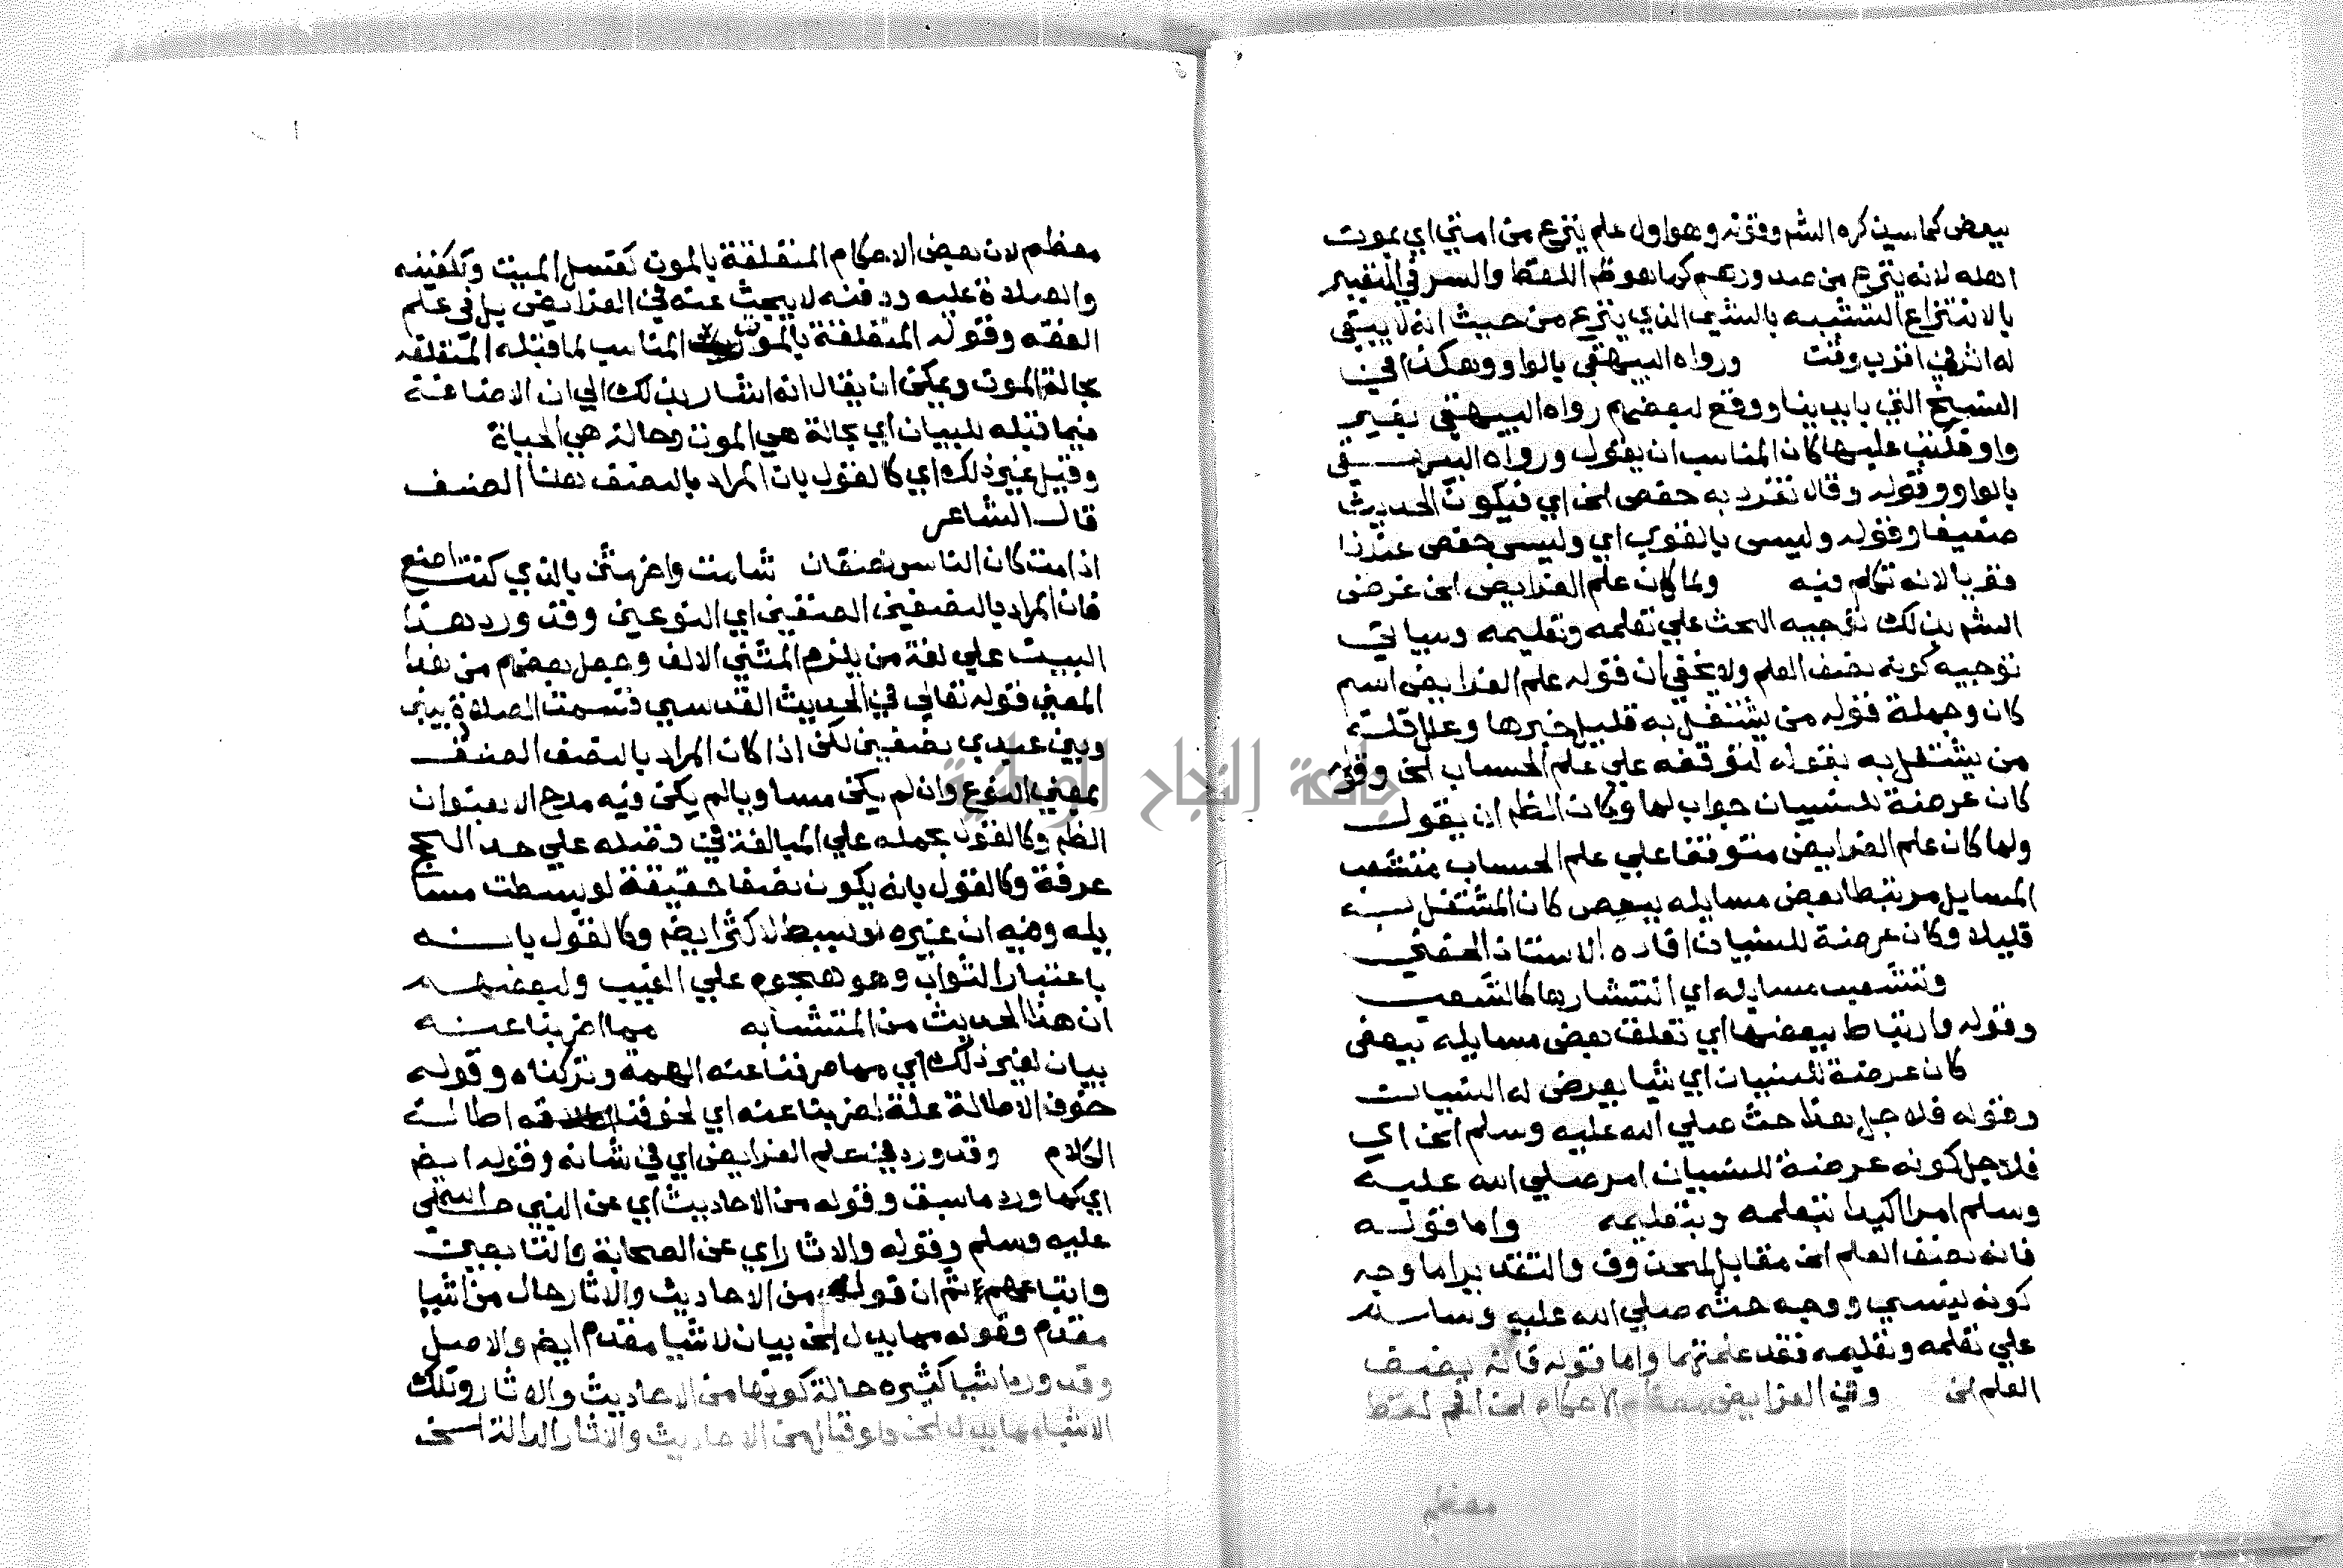 ببعض كما سيذكره الشم وقوله وهو اول علم ينزع من امتي اي بموت
اهله لانه ينزع من صدورهم كما هو ظم اللفظ والسر في التعبير
بالانتزاع التشبيه بالشئ الذي ينزع من حيث انه لا يبقى
له اثر في اقرب وقت ورواه البيهقي بالواو وهكذا في
النسخ التي بايدينا ووقع لبعضهم رواه البيهقي بغير
واو فكتب عليها كان المناسب ان يقول ورواه البيهقي
بالواو وقوله وقال تفرد به حفص الخ اي فيكون الحديث
ضعيفا وقوله وليس بالقوي اي وليس حفص عندنا
قويا لانه تكلم فيه ولما كان علم الفرايض الخ غرض
الشم بذلك توجيه الحث على تعلمه وتعليمه وسياتي
توجيه كونه نصف العلم ولا يخفى ان قوله علم الفرايض اسم
كان وجملة قوله من يشتغل به قليل خبرها وعلل قلت
من يشتغل به بقوله لتوقفه علي علم الحساب الخ وقوله
كان عرضة للنسيان جواب لما وكان الظم ان يقول
ولما كان علم الفرايض متوقفا علي علم الحساب متشعب
المسايل مرتبطا بعض مسايله ببعض كان المشتغل به
قليلا وكان عرضة للنسيان افاده الاستاذ الحفني
وتشعب مسايله اي انتشارها كالشعب
وقوله وارتباط بعضها اي تعلق بعض مسايله ببعض
كان عرضة للنسيان اي شيا يعرض له النسيان
وقوله فلاجل هذا حث صلي الله عليه وسلم الخ اي
فلاجل كونه عرضة للنسيان امر صلي الله عليه
وسلم امرا اكيدا بتعلمه وبتعليمه واما قوله
فانه نصف العلم الخ مقابل لمحذوف والتقدير اما وجه
كونه ينسي ووجه حثه صلي الله عليه وسلم
علي تعلمه وتعليمه فقد علمتهما واما قوله فانه نصف
العلم الخ وفي الفرايض معظم الاحكام الخ اقحم لفظ
معظم
معظم لان بعض الاحكام المتعلقة بالموت كغسل الميت وتكفينه
والصلاة عليه ودفنه لا يبحث عنه في الفرايض بل في علم
الفقه وقوله المتعلقة بالموت المناسب لما قبله المتعلقه
بحالة الموت ويمكن ان يقال انه اشار بذلك الي ان الاضافة
فيما قبله للبيان اي بحالة هي الموت وحالة هي الحياة
وقيل غير ذلك اي كالقول بان المراد بالنصف هنا الصنف
قال الشاعر
اذا مت كان الناس نصفان شامت واخر مثن بالذي كنت اصنع
فان المراد بالنصفين الصنفين اي النوعين وقد ورد هذا
البيت علي لغة من يلزم المثني الالف وجعل بعضهم من هذا
المعني قوله تعالي في الحديث القدسي قسمت الصلاة بيني
وبين عبدي نصفين لكن اذا كان المراد بالنصف الصنف
بمعني النوع وان لم يكن مساويا لم يكن فيه مدح الا بعنوان
الظم وكالقول بحمله علي المبالغة في فضله علي حد الحج
عرفة وكالقول بانه يكون نصفا حقيقة لو بسطت مسا
يله وفيه ان غيره لو بسط لا كثر ايضم وكالقول بانه
باعتبار الثواب وهو هجوم علي الغيب ولبعضهم
ان هذا الحديث من المتشابه مما اضربنا عنه
بيان لغير ذلك اي مما صرفنا عنه الهمة وتركناه وقوله
خوف الاطالة علة لضربنا عنه اي لخوفنا اطالة
الكلام وقد ورد في علم الفرايض اي في شانه وقوله ايضم
اي كما ورد ما سبق وقوله من الاحاديث اي عن النبي صلي الله
عليه وسلم وقوله والاثار اي عن الصحابة والتابعين
واتباعهم ثم ان قوله من الاحاديث والاثار حال من اشيا
مقدم وقوله مما يدل الخ بيان لاشيا مقدم ايضم والاصل
وقد ورد اشيا كثيره حالة كونها من الاحاديث والاثار وتلك
الاشيا مما يدل الخ ولو قال من الاحاديث والاثار الدالة الخ
جامعة النجاح الوطنية